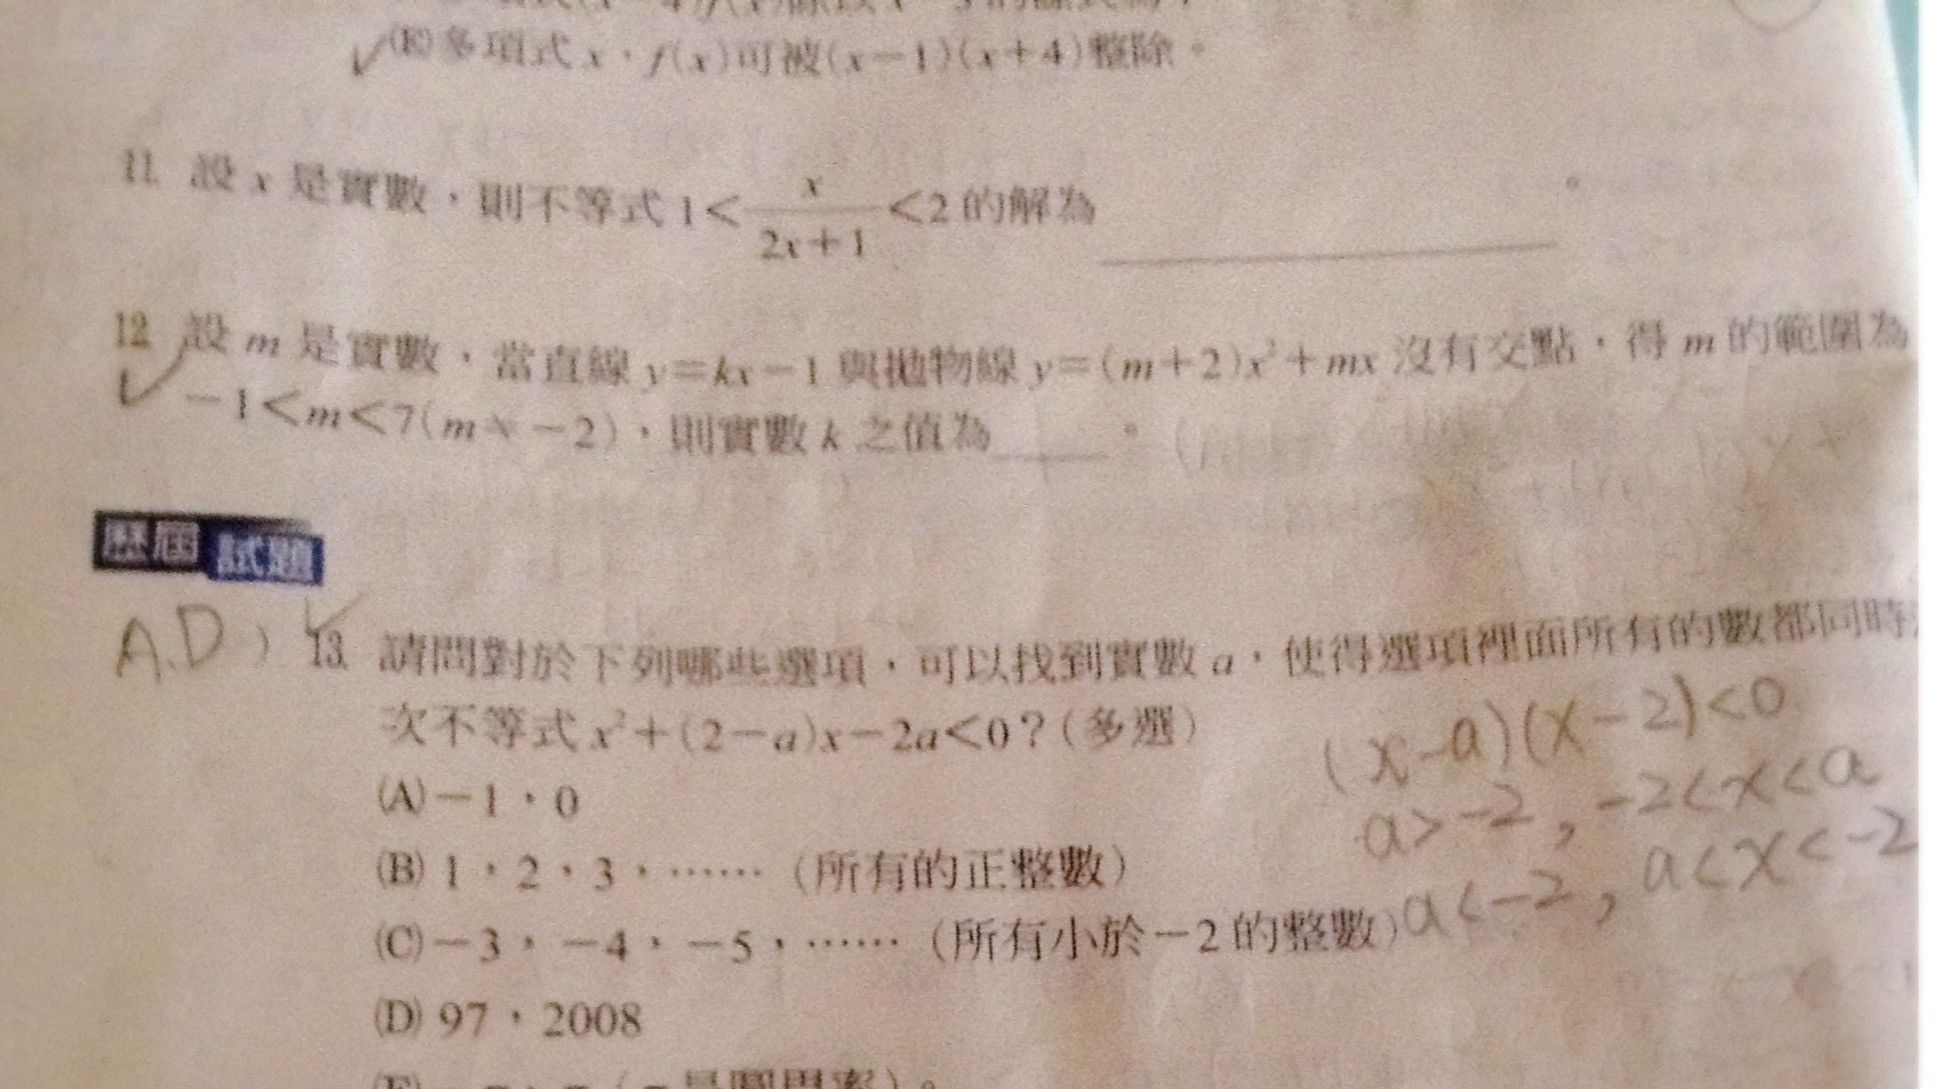 (E)多項式 x・f(x)可被(x-1)(x+4)整除。
11. 設 x 是實數,則不等式 1< x/(2x+1) <2 的解為________。
12. 設 m 是實數,當直線 y=kx-1 與拋物線 y=(m+2)x²+mx 沒有交點,得 m 的範圍為
-1<m<7(m≠-2),則實數 k 之值為____。
歷屆試題
A.D
13. 請問對於下列哪些選項,可以找到實數 a,使得選項裡面所有的數都同時
次不等式 x²+(2-a)x-2a<0?(多選)
(x-a)(x-2)<0
(A)-1,0
a>-2, -2<x<a
(B) 1,2,3,……(所有的正整數)
a<-2, a<x<-2
(C)-3,-4,-5,……(所有小於-2的整數)
(D) 97,2008